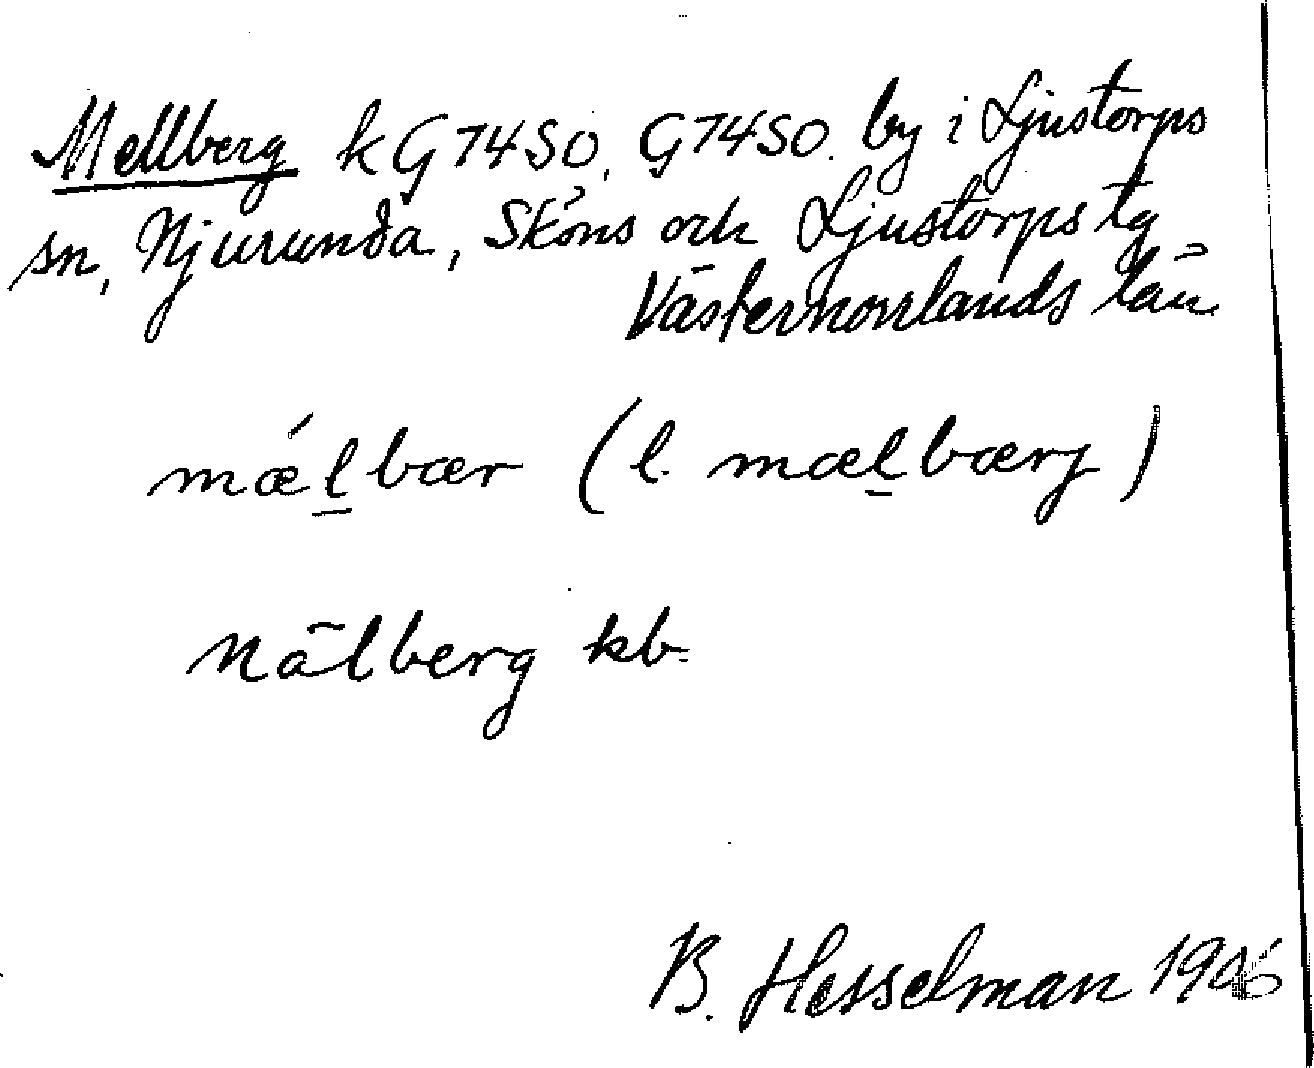 Mellberg kG74SO, G74SO. by i Ljustorps
sn, Njurunda, Sköns och Ljustorps tg
Västernorrlands län
mǽl̲bær (l. mæl̲bærj)
Nälberg kb
B. Hesselman 1906